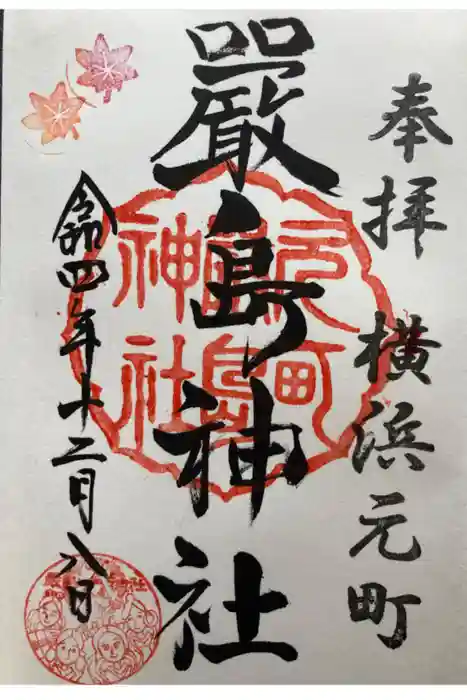 奉拝 横浜元町
嚴島神社
元町嚴島神社
令四年十二月八日